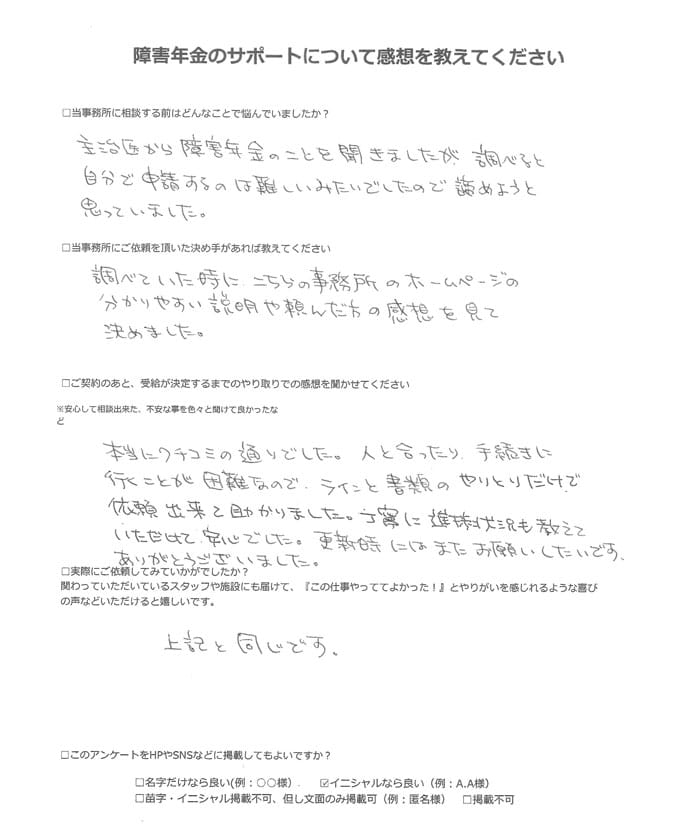 障害年金のサポートについて感想を教えてください
□当事務所に相談する前はどんなことで悩んでいましたか？
主治医から障害年金のことを聞きましたが、調べると
自分で申請するのは難しいみたいでしたので諦めようと
思っていました。
□当事務所にご依頼を頂いた決め手があれば教えてください
調べていた時に、こちらの事務所のホームページの
分かりやすい説明や頼んだ方の感想を見て
決めました。
□ご契約のあと、受給が決定するまでのやり取りでの感想を聞かせてください
※安心して相談出来た、不安な事を色々と聞けて良かったな
ど
本当にクチコミの通りでした。人と合ったり、手続きに
行くことが困難なので、ラインと書類のやりとりだけで
依頼出来て助かりました。丁寧に進捗状況も教えて
いただけて、安心でした。更新時にはまたお願いしたいです、
ありがとうございました。
□実際にご依頼してみていかがでしたか？
関わっていただいているスタッフや施設にも届けて、『この仕事やっててよかった！』とやりがいを感じれるような喜び
の声などいただけると嬉しいです。
上記と同じです。
□このアンケートをHPやSNSなどに掲載してもよいですか？
□名字だけなら良い(例：〇〇様）. ☑イニシャルなら良い（例：A.A様）
□苗字・イニシャル掲載不可、但し文面のみ掲載可（例：匿名様） □掲載不可